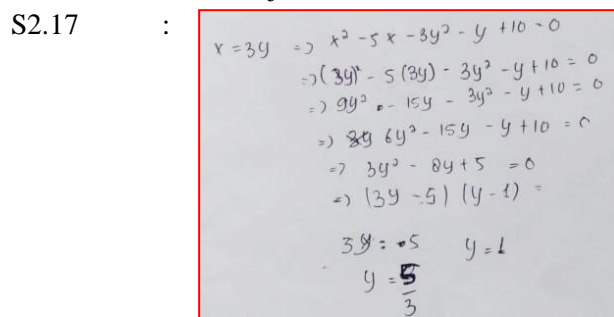 S2.17 :
x = 3y => x² - 5x - 3y² - y + 10 = 0
=> (3y)² - 5(3y) - 3y² - y + 10 = 0
=> 9y² - 15y - 3y² - y + 10 = 0
=> 6y² - 15y - y + 10 = 0
=> 3y² - 8y + 5 = 0
=> (3y - 5) (y - 1) =
3y = 5 y = 1
y = 5/3